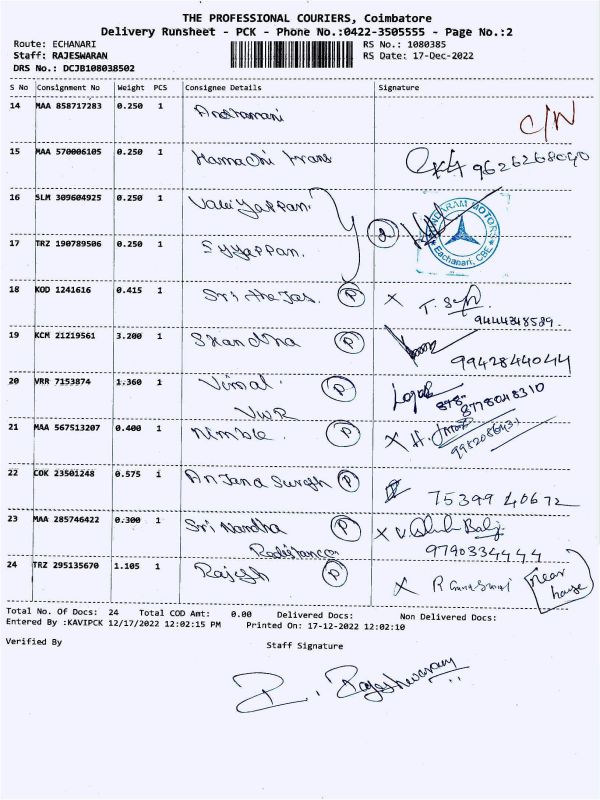 THE PROFESSIONAL COURIERS, Coimbatore
Delivery Runsheet - PCK - Phone No.:0422-3505555 - Page No.:2
Route: ECHANARI RS No.: 1080385
Staff: RAJESWARAN RS Date: 17-Dec-2022
DRS No.: DCJB108038502
S No Consignment No Weight PCS Consignee Details Signature
14 MAA 858717283 0.250 1 C/N
15 MAA 570006105 0.250 1 9626268090
16 SLM 309604925 0.250 1 Valliyappan
MOTORS
Eachanari, CBE
17 TRZ 190789506 0.250 1 Iyyappan. 2
18 KOD 1241616 0.415 1 Sri P X T.
9444348589.
19 KCM 21219561 3.200 1 Skandha P
9942844044
20 VRR 7153874 1.360 1 Vimal P
VWR 8778048310
21 MAA 567513207 0.400 1 Nimble P X H.
22 COK 23501248 0.575 1 Anjana Suresh P
75399 40672
23 MAA 285746422 0.300 1 Sri Nandha P X
9790334444
24 TRZ 295135670 1.105 1 Rajesh P X R near
house
Total No. Of Docs: 24 Total COD Amt: 0.00 Delivered Docs: Non Delivered Docs:
Entered By :KAVIPCK 12/17/2022 12:02:15 PM Printed On: 17-12-2022 12:02:10
Verified By Staff Signature
R. Rajeshwaran